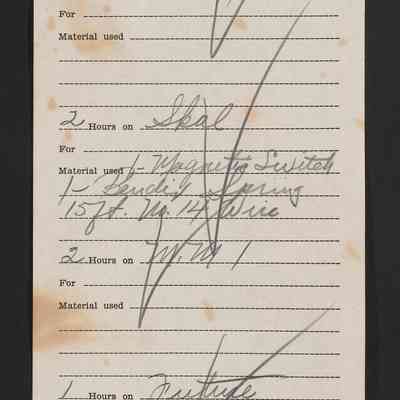 For
Material used
2 Hours on Skal
For
Material used 1- Magnetig Switch
1- Bendix Spring
15 ft. No. 14 Wire
2 Hours on M.M 1
For
Material used
1 Hours on Future